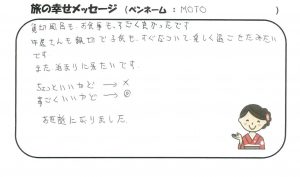 旅の幸せメッセージ (ペンネーム : MOTO )
貸切風呂も、お食事も、すごく良かったです
仲居さんも親切で子供も、すぐなついて、楽しく過ごせたみたい
です
また、泊まりに来たいです。
ちょっといいかも → ×
すごくいいかも → ◎
お世話になりました